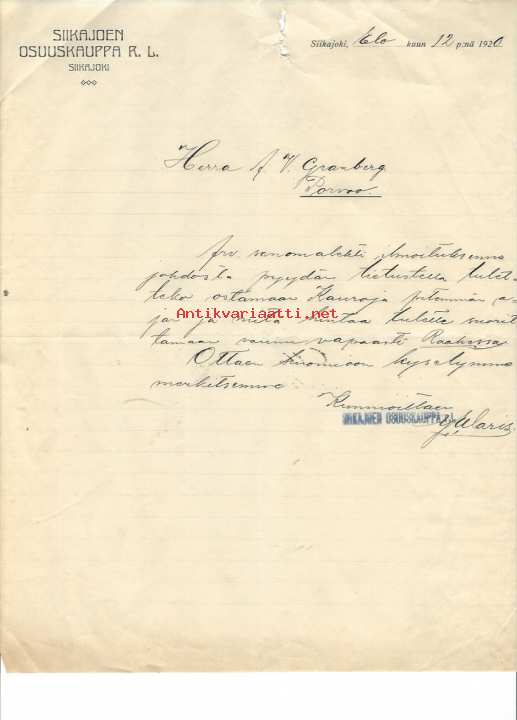 SIIKAJOEN
OSUUSKAUPPA R. L.
SIIKAJOKI
Siikajoki, Elo kuun 12 p:nä 1920
Herra A V. Granberg
Porvoo.
Arv. sanomalehti ilmoituksenne
johdosta pyydän tiedustella tulet-
teko ostamaan Kauroja pitemmän a-
jan ja mitä hintaa tulette suorit-
tamaan vaunu vapaasti Raahessa
Antikvariaatti.net
Ottaen huomioon kyselymme
merkitsemme
Kunnioittaen
SIIKAJOEN OSUUSKAUPPA r.l.